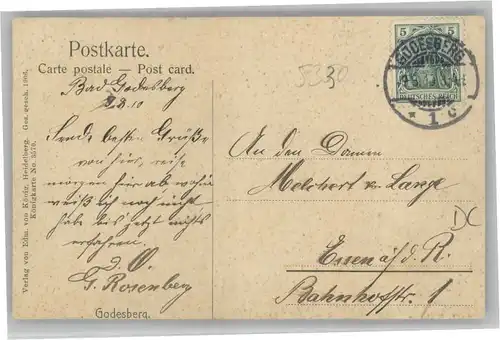 Postkarte.
Carte postale — Post card.
Bad Godesberg
2.8.10
Sende besten Grüße
von hier, reise
morgen hier ab, wohin
weiß ich noch nicht
habe bis jetzt nichts
erfahren.
G. Rosenberg
Godesberg.
Verlag von Edm. von König, Heidelberg. Ges. gesch. 1906.
Königkarte No. 3570.
5 5
DEUTSCHES REICH
GODESBERG
* 1 c
5330
An den Damen
Melchert v. Lange
DC
Essen a/d. R.
Bahnhofstr. 1